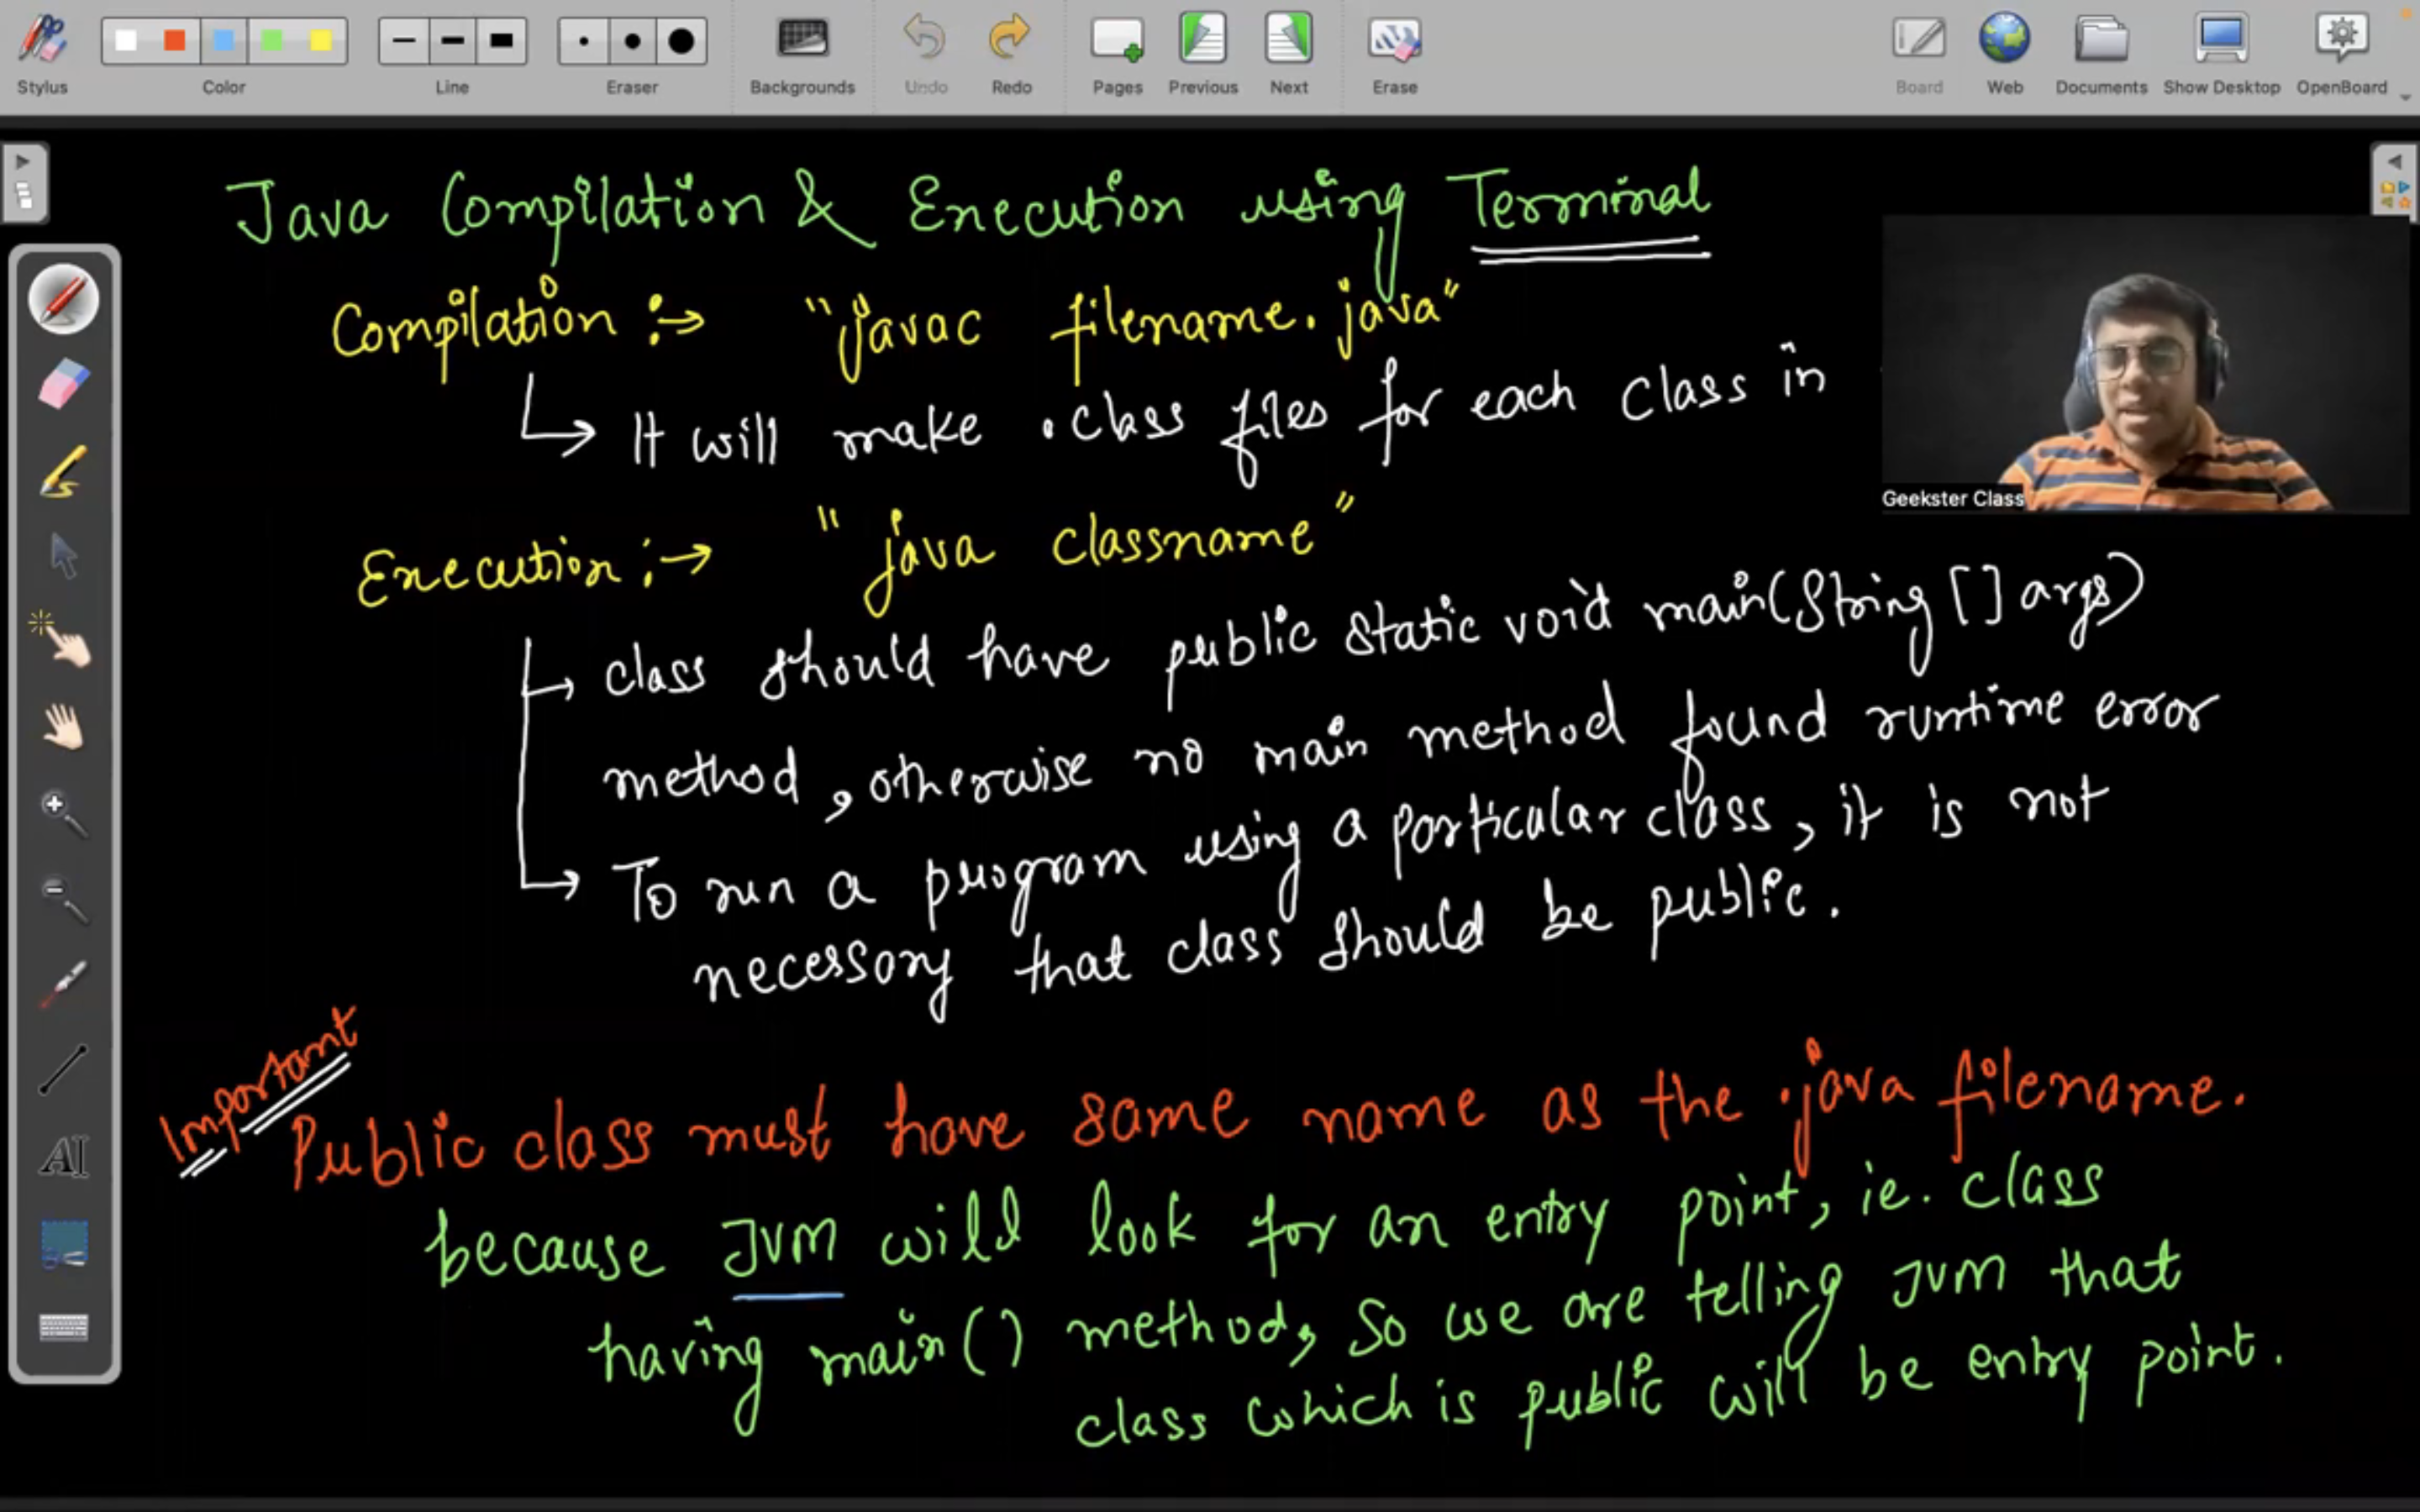 Stylus
Color
Line
Eraser
Backgrounds
Undo
Redo
Pages
Previous
Next
Erase
Board
Web
Documents
Show Desktop
OpenBoard
Java Compilation & Execution using Terminal
Compilation :→ "javac filename.java"
It will make .class files for each class in
Geekster Class
Execution :→ "java classname"
class should have public static void main(String [] args)
method, otherwise no main method found runtime error
To run a program using a particular class, it is not
necessary that class should be public.
Important
Public class must have same name as the .java filename.
because JVM will look for an entry point, ie. class
having main() method, So we are telling JVM that
class which is public will be entry point.
AI